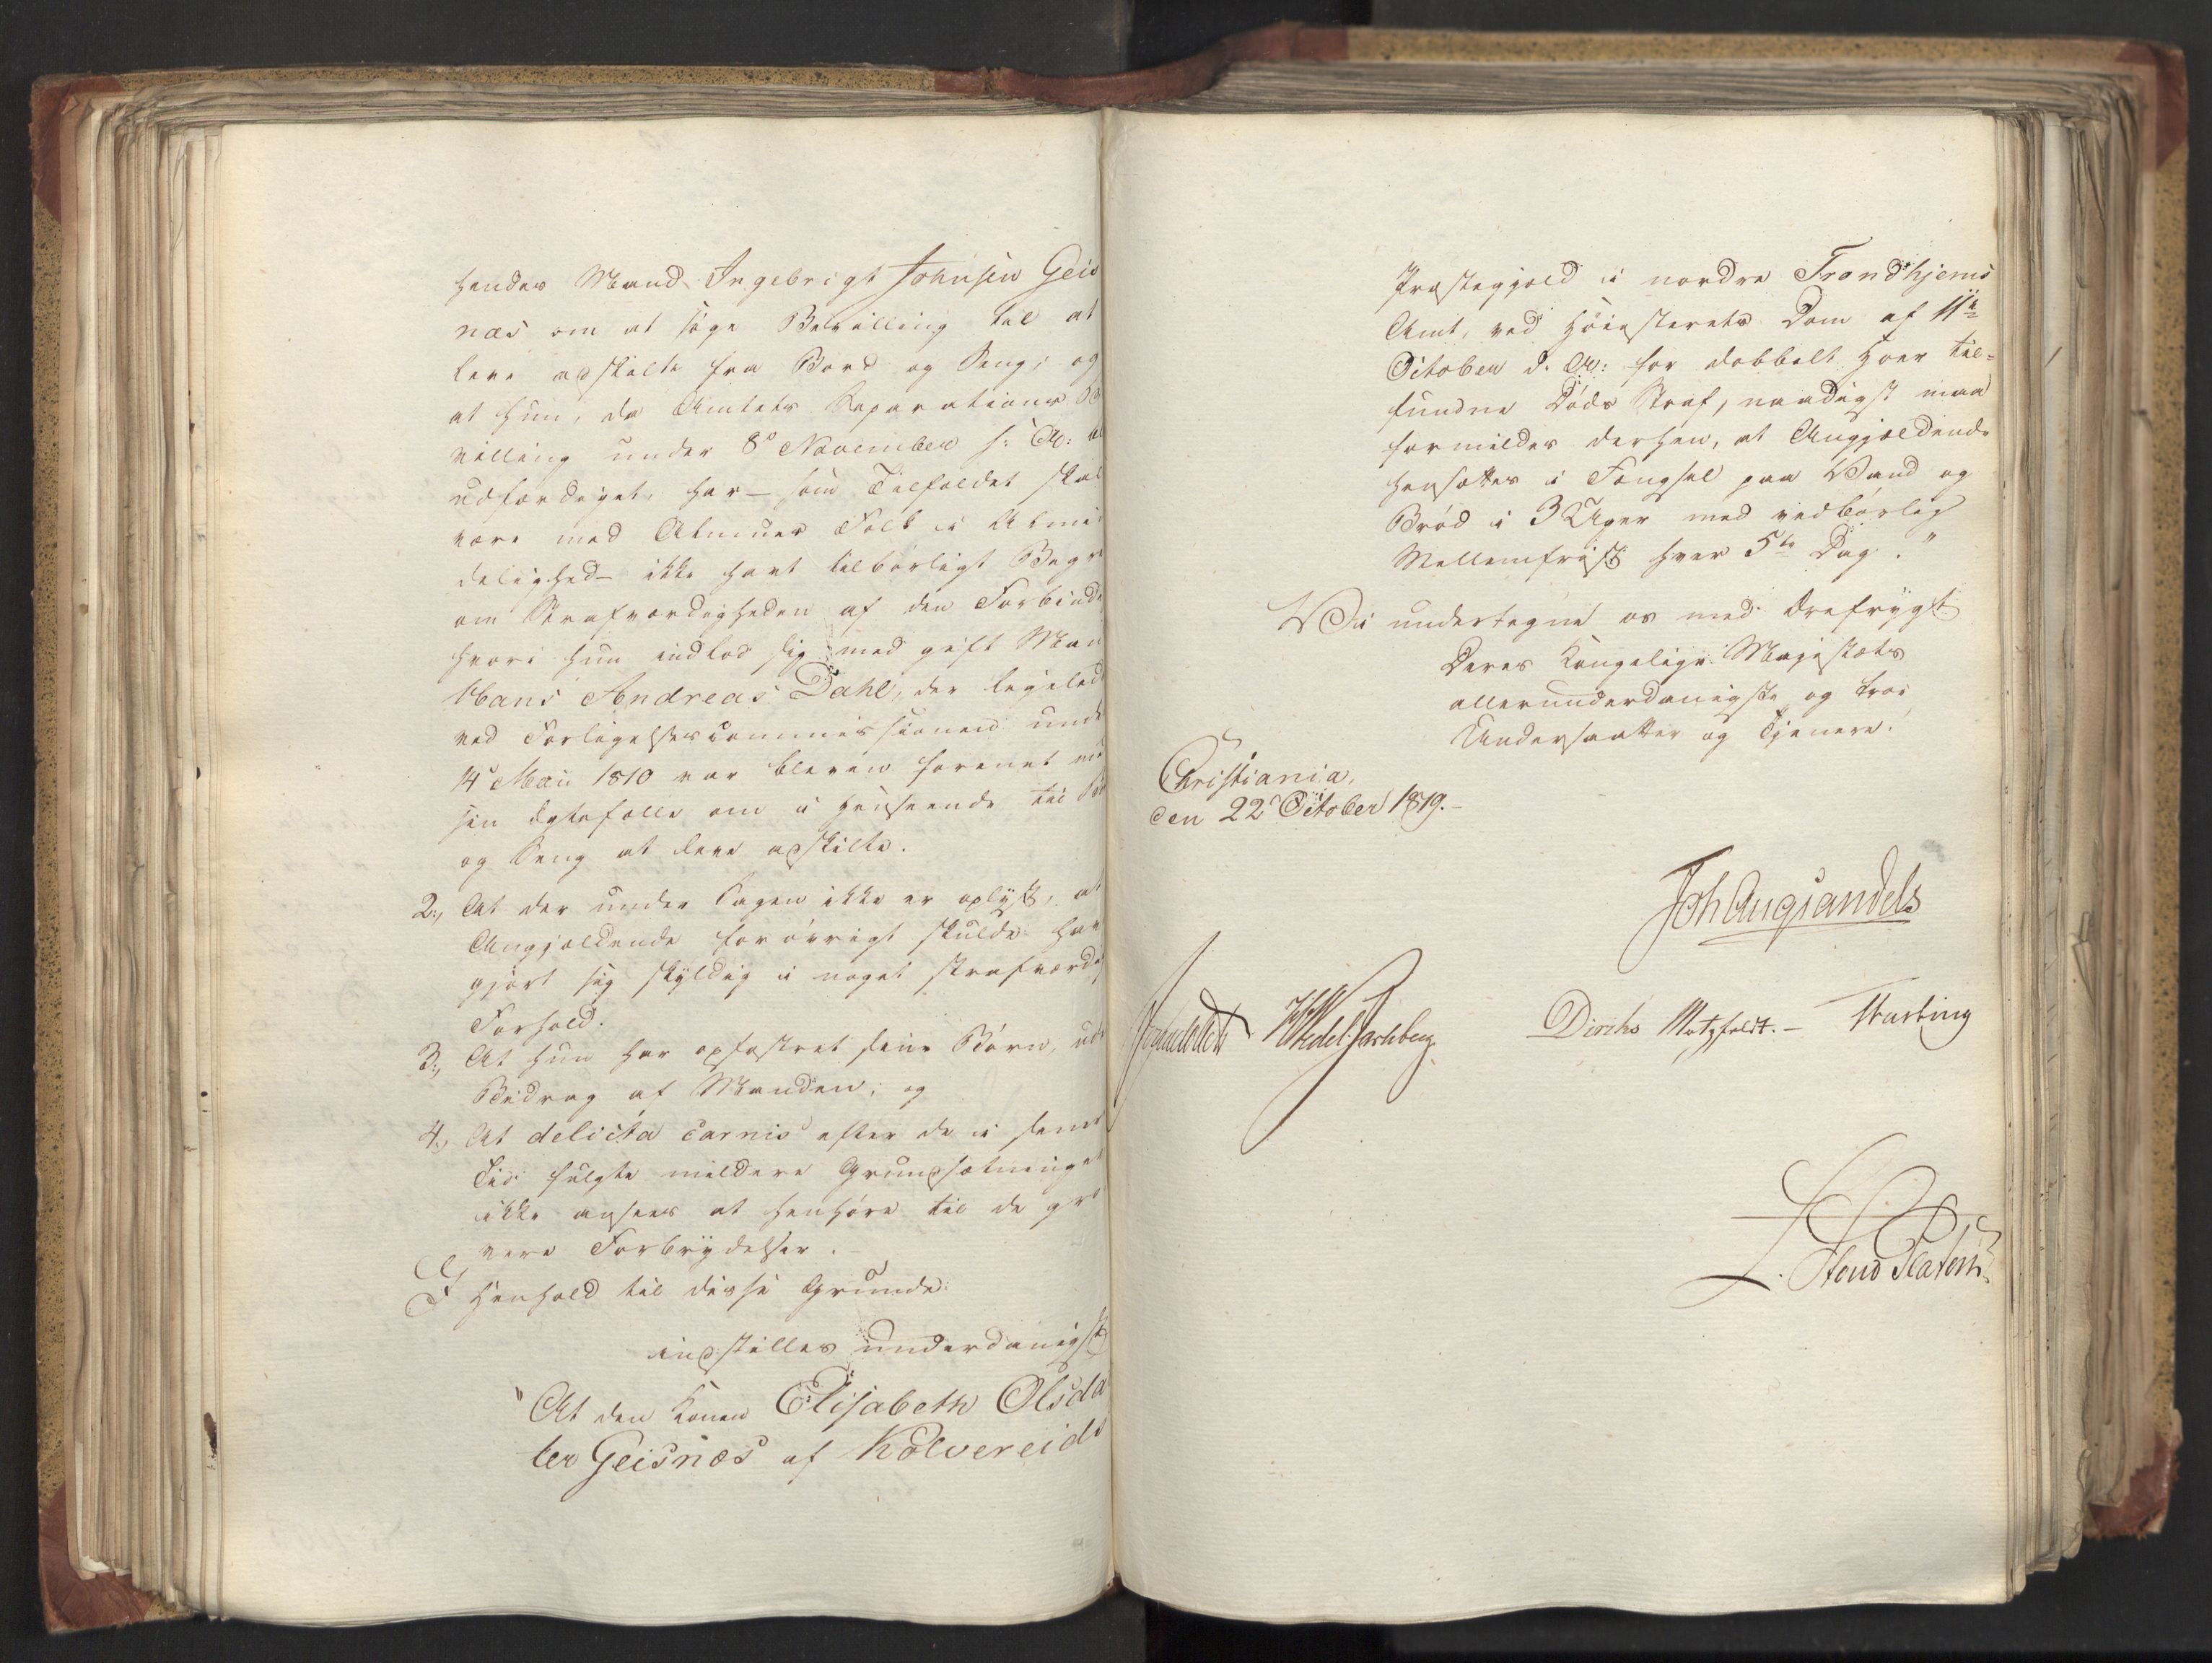 hendes Mand Ingebrigt Johnsen Geis
næs om at søge Bevilling til at
leve adskilte fra Bord og Seng; og
at hun, da Amtets Separations Be
villing under 8de November s: A:
udfærdiget, har – som Tilfældet skal
være med Almues Folk i Almin
delighed – ikke havt tilbørligt Begre
om Strafværdigheden af den Forbinde
hvori hun indlod sig med gift Man
Hans Andreas Dahl, der ligeled
ved Forligelsescommissionen unde
14de Maii 1810 var bleven forenet me
sin Ægtefælle om i Henseende til Bor
og Seng at leve adskilte.
2., At der under Sagen ikke er oplyst, at
Angjældende forøvrigt skulde hav
gjort sig skyldig i noget strafværdig
Forhold.
3., At hun har opfostret sine Børn, ude
Bidrag af Manden; og
4., At delicta carnis efter de i sener
Tid fulgte mildere Grundsætninger
ikke ansees at henhøre til de gro
vere Forbrydelser. –
I Henhold til disse Grunde
indstilles underdanigst
"At den Konen Elisabeth Olsda
ter Geisnæs af Kolvereids
Præstegjæld i nordre Trondhjems
Amt, ved Høiesterets Dom af 11te
October d. A: for dobbelt Hoer til=
funden Døds Straf, naadigst maa
formildes derhen, at Angjældende
hensættes i Fængsel paa Vand og
Brød i 3 Uger med vedbørlig
Mellemfrist hver 5te Dag."
Vi undertegne os med Ærefrygt
Deres Kongelige Majestæts
allerunderdanigste og troe
Undersaatter og Tjenere.
Christiania,
den 22de October 1819. –
Joh Aug Sandels
Sommerhielm HWedel Jarlsberg Diriks Motzfeldt. – Krebting
L. Stoud Platou